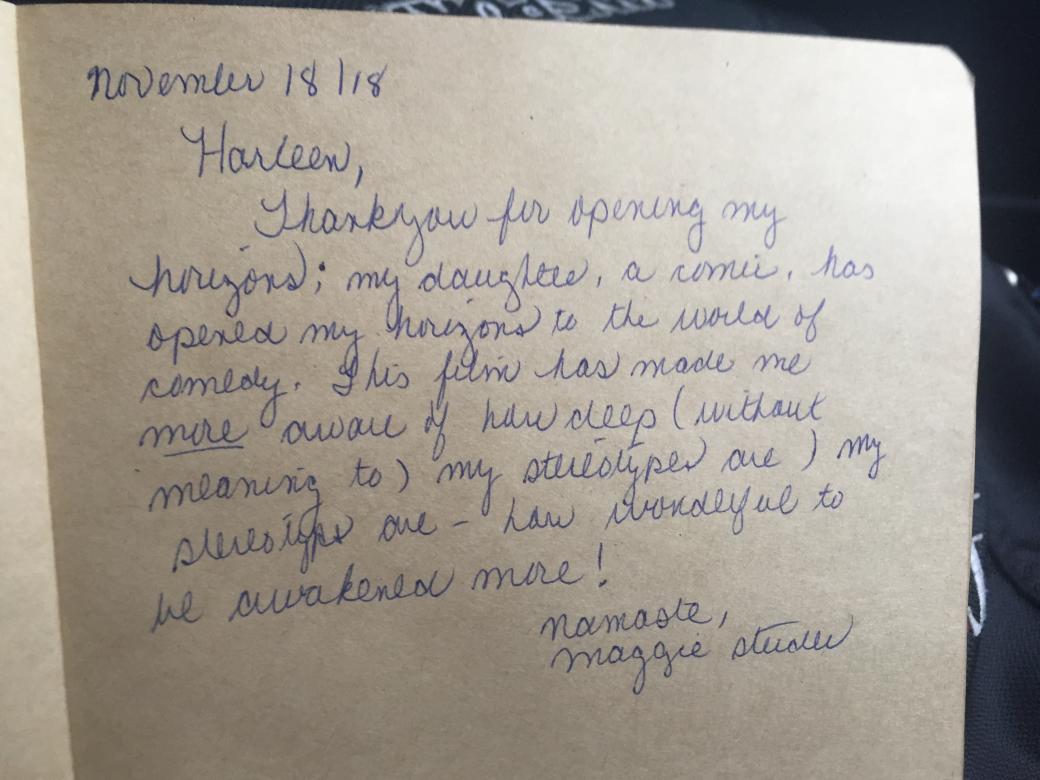 November 18/18
Harleen,
Thankyou for opening my
horizons; my daughter, a comic, has
opened my horizons to the world of
comedy. This film has made me
more aware of how deep (without
meaning to) my stereotypes are ) my
stereotypes are - how wonderful to
be awakened more!
Namaste,
Maggie Studer